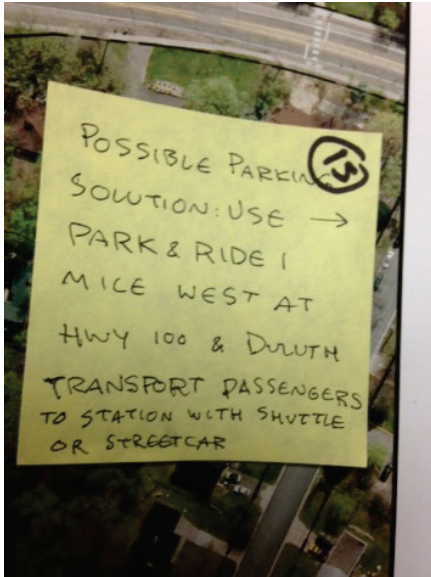 POSSIBLE PARKING 15
SOLUTION: USE →
PARK & RIDE 1
MILE WEST AT
HWY 100 & DULUTH
TRANSPORT PASSENGERS
TO STATION WITH SHUTTLE
OR STREETCAR